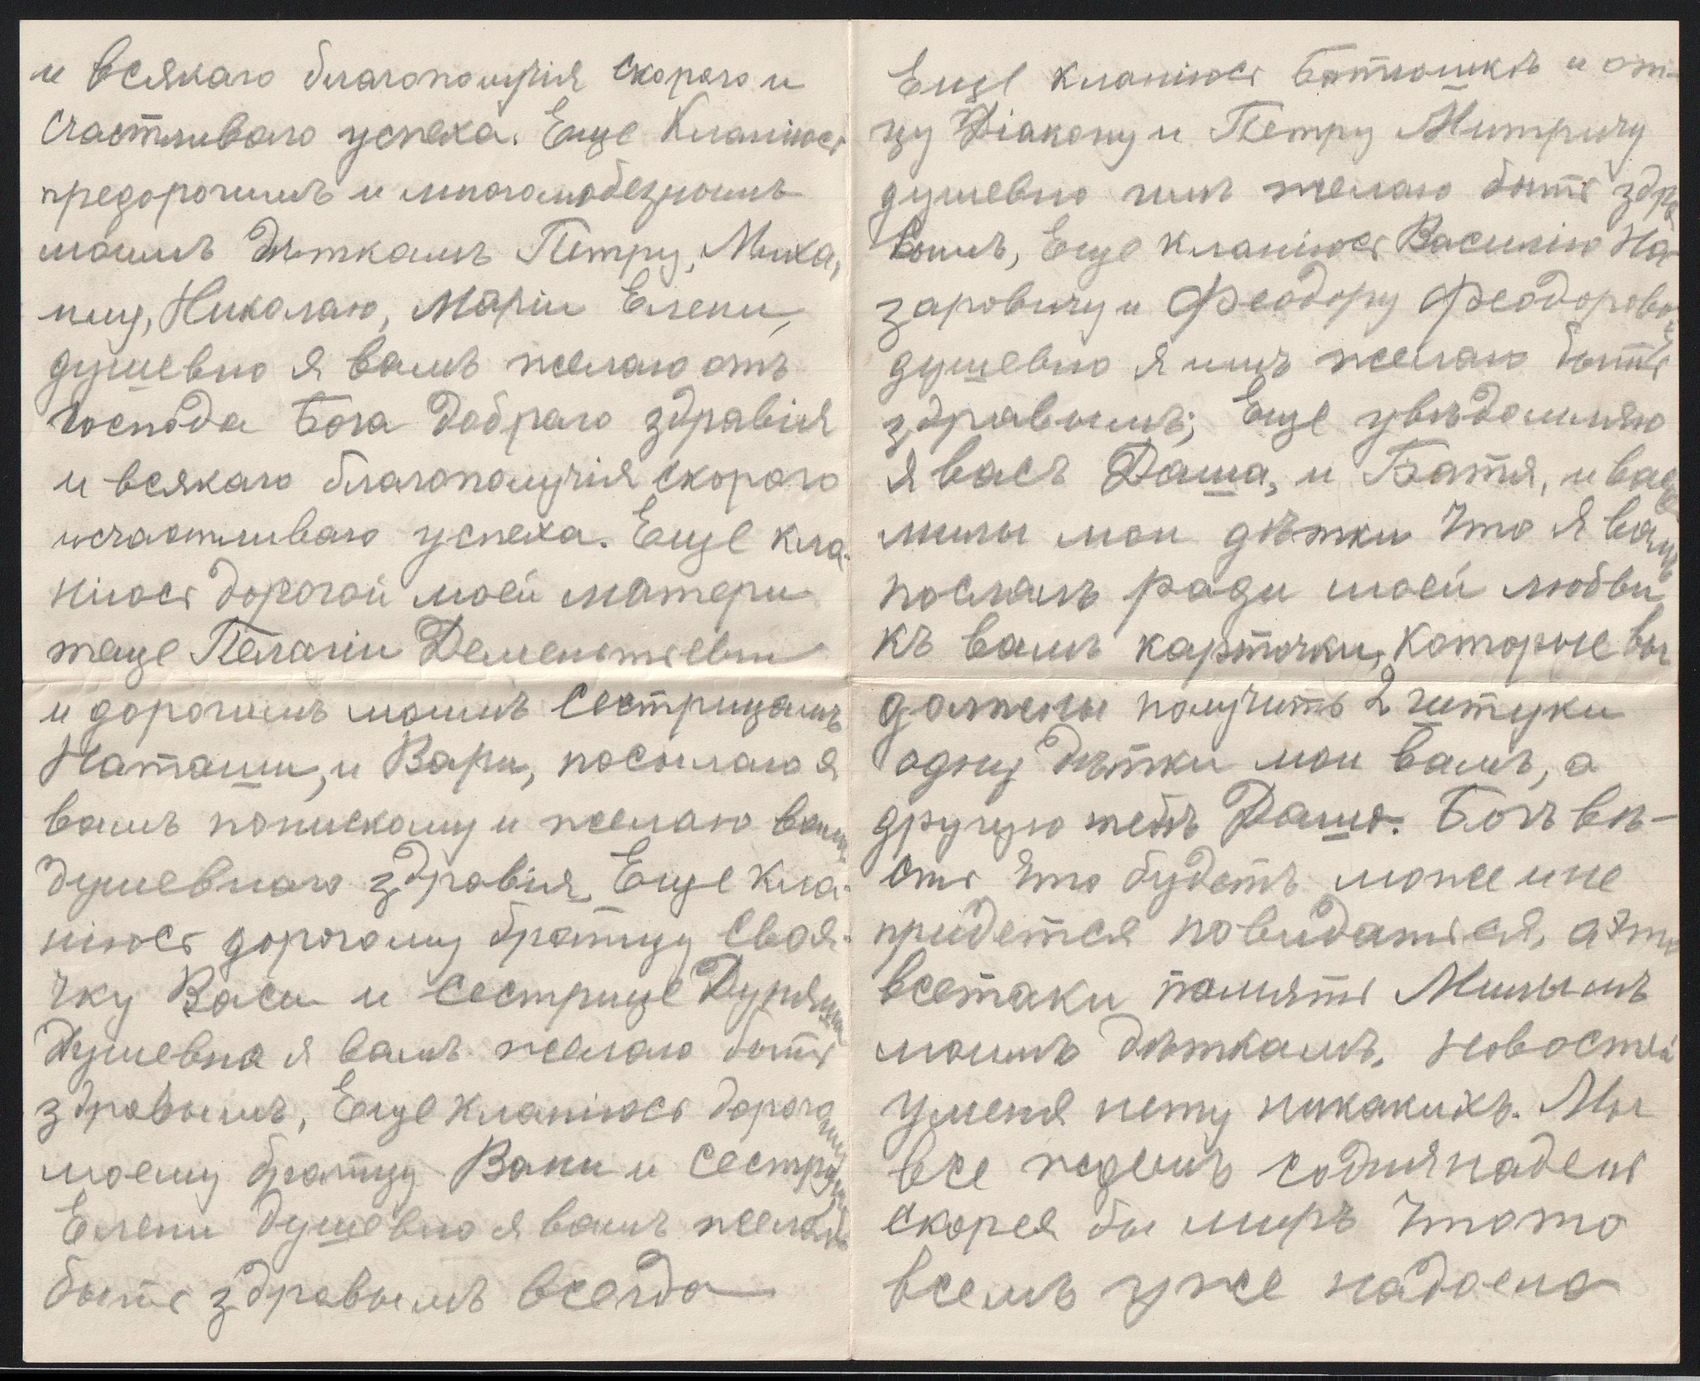 и всякаго благополучія скораго и
счастливаго успеха. Еще Кланіюсь
предорогимъ и многолюбезнымъ
моимъ дѣткамъ Петру, Миха,
илу, Николаю, Маріи Елени,
душевно я вамъ желаю отъ
Господа Бога добраго здравія
и всякаго благополучія скорого
исчастливаго успеха. Еще кла-
ніюсь дорогой моей матери
теще Пелагіи Дементьевни
и дорогимъ моимъ сестрицамъ
Наташи, и Вари, посылаю я
вамъ попискому и желаю вамъ
душевнаго здравія, Еще кла-
ніюсь дорогому братцу своя-
чку Васи и сестрице Дуняши
Душевна я вамъ желаю быть
здравымъ, Еще кланіюсь дорогому
моему братцу Вани и сестрицы
Елени душевно я вамъ желаю
быть здравымъ всегда
Еще кланіюсь Батюшкѣ и от-
цу Діакону и Петру Митричу
душевно имъ желаю быть здра
вымъ, Еще кланіюсь Василію На-
заровичу и Феодору Феодоровичу
душевно я имъ желаю быть
здравымъ; Еще увѣдомляю
я васъ Даша, и Батя, и васъ
милы мои дѣтки что я вамъ
послалъ ради моей любви
къ вамъ карточки, которые вы
должны получить 2 штуки
одну дѣтки мои вамъ, а
другую тебѣ Даша. Богъ вѣ-
сть что будетъ може и не
придется повидаться, а это
всетаки память Милымъ
моимъ дѣткамъ. новостей
уменя нету никакихъ. Мы
все ждемъ содня надень
скорея бы миръ чтото
всемъ уже надоела